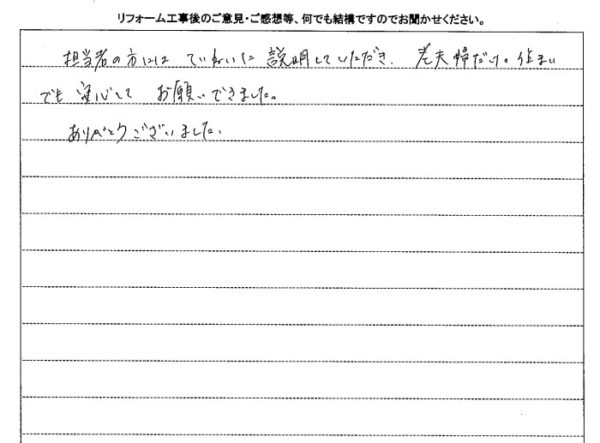 リフォーム工事後のご意見・ご感想等、何でも結構ですのでお聞かせください。
担当者の方には ていねいに 説明していただき、老夫婦だけの住まい
でも 安心して お願いできました。
ありがとうございました。